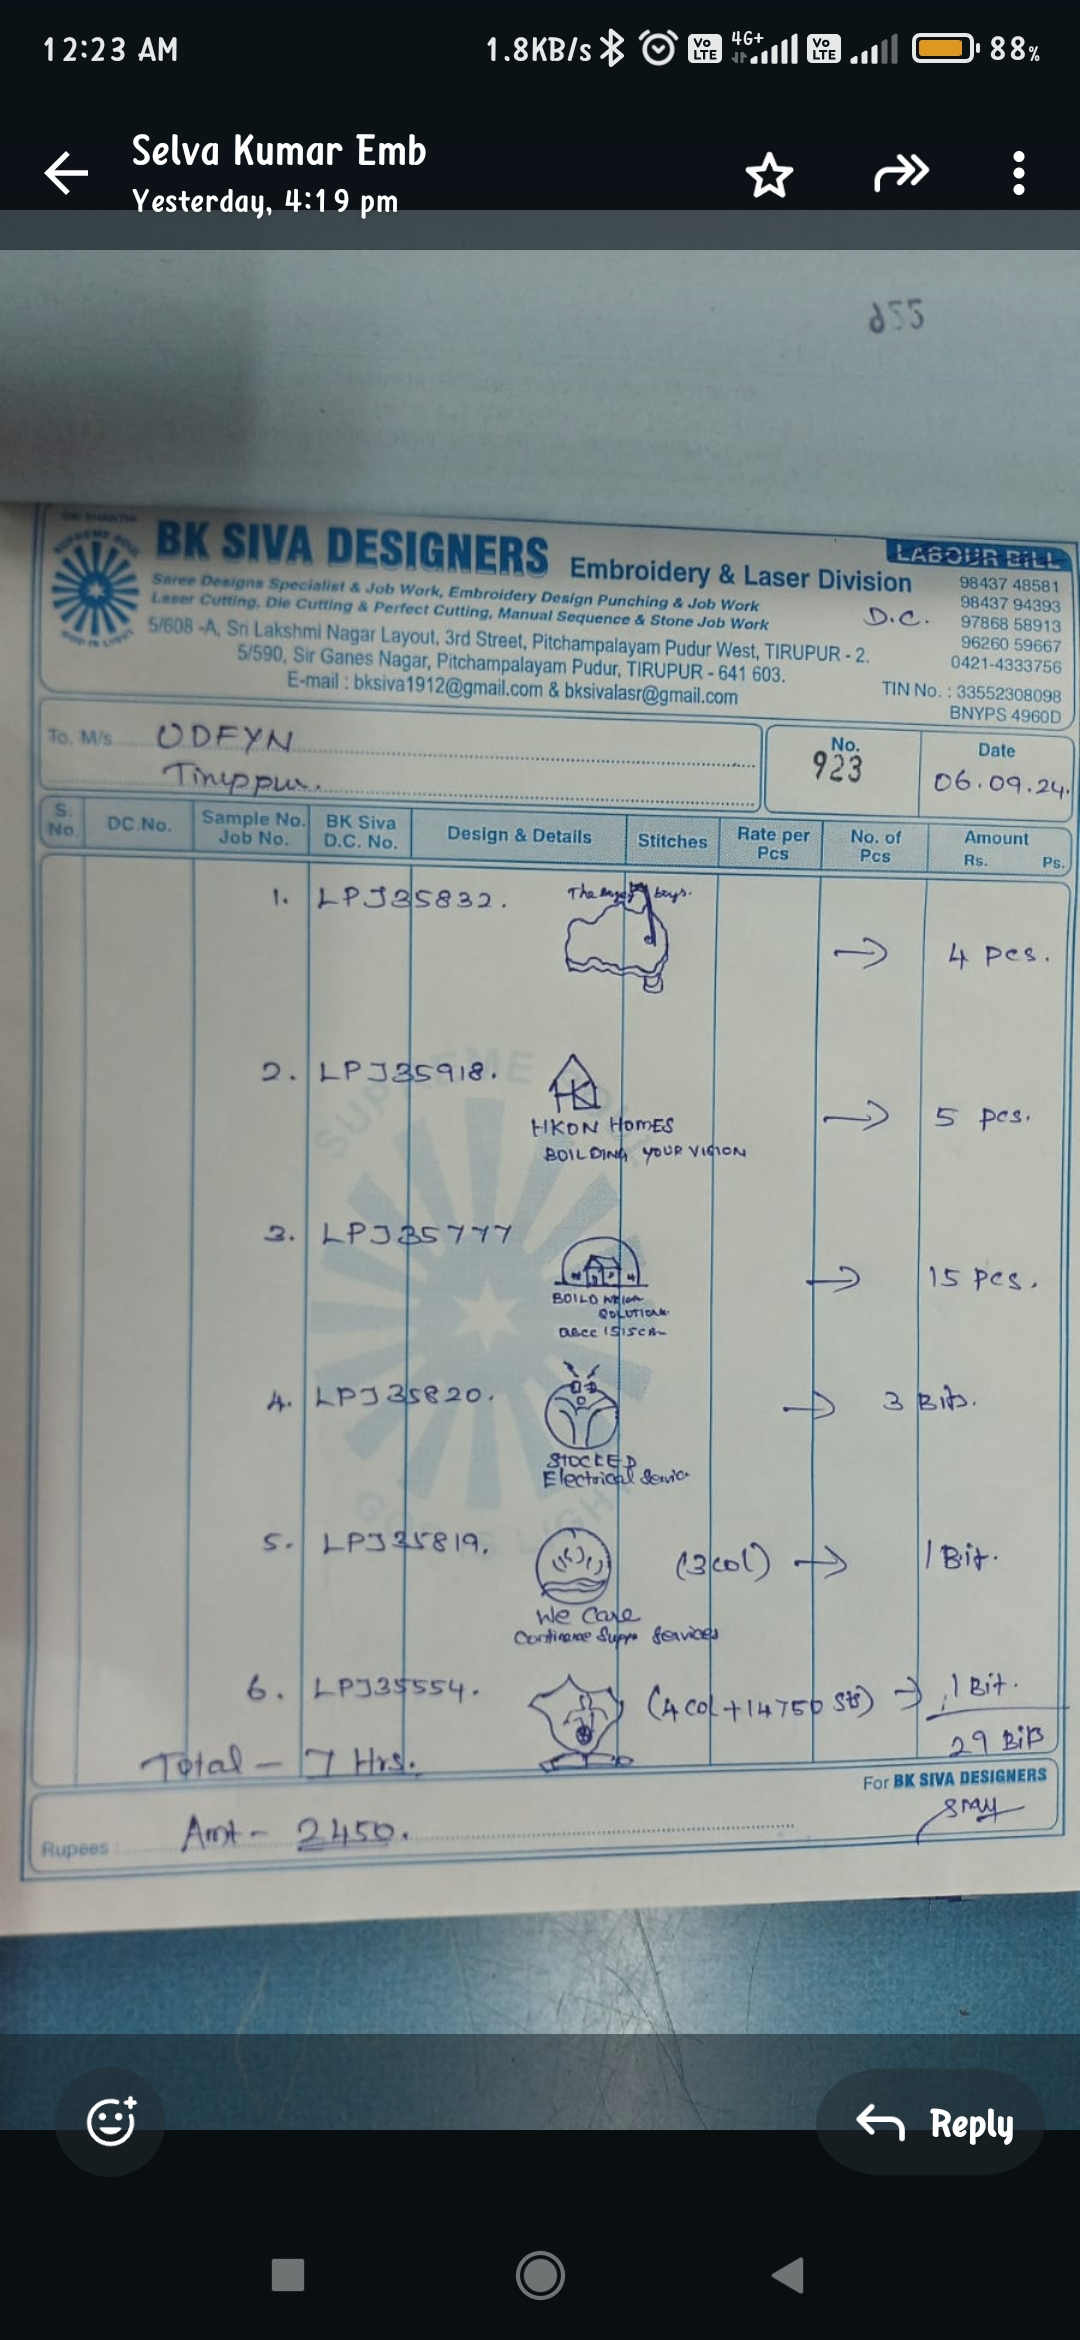 12:23 AM 1.8KB/s Vo LTE 4G+ Vo LTE 88%
Selva Kumar Emb
Yesterday, 4:19 pm
SUPREME SOUL
GOD IS LIGHT
BK SIVA DESIGNERS Embroidery & Laser Division
LABOUR BILL
Saree Designs Specialist & Job Work, Embroidery Design Punching & Job Work
Laser Cutting, Die Cutting & Perfect Cutting, Manual Sequence & Stone Job Work
D.C.
5/608 -A, Sri Lakshmi Nagar Layout, 3rd Street, Pitchampalayam Pudur West, TIRUPUR - 2.
5/590, Sir Ganes Nagar, Pitchampalayam Pudur, TIRUPUR - 641 603.
E-mail : bksiva1912@gmail.com & bksivalasr@gmail.com
98437 48581
98437 94393
97868 58913
96260 59667
0421-4333756
TIN No. : 33552308098
BNYPS 4960D
To, M/s UDFYN
Tiruppur.
No. 923
Date 06.09.24.
S. No. DC.No. Sample No. Job No. BK Siva D.C. No. Design & Details Stitches Rate per Pcs No. of Pcs Amount Rs. Ps.
1. LPJ35832. The boys. → 4 Pcs.
2. LPJ35918. HK → 5 Pcs.
HKON HOMES
BOILDING YOUR VISION
3. LPJ35777 → 15 Pcs.
BOILD
SOLUTIONS
4. LPJ35820. → 3 Bits.
STOCKED
Electrical Servic
5. LPJ35819. (3col) → 1 Bit.
We Care
Continence Suppo Services
6. LPJ35554. (4 col + 14750 Sts) → 1 Bit.
29 Bits
Total - 7 Hrs.
For BK SIVA DESIGNERS
Rupees : Amt - 2450.
Reply